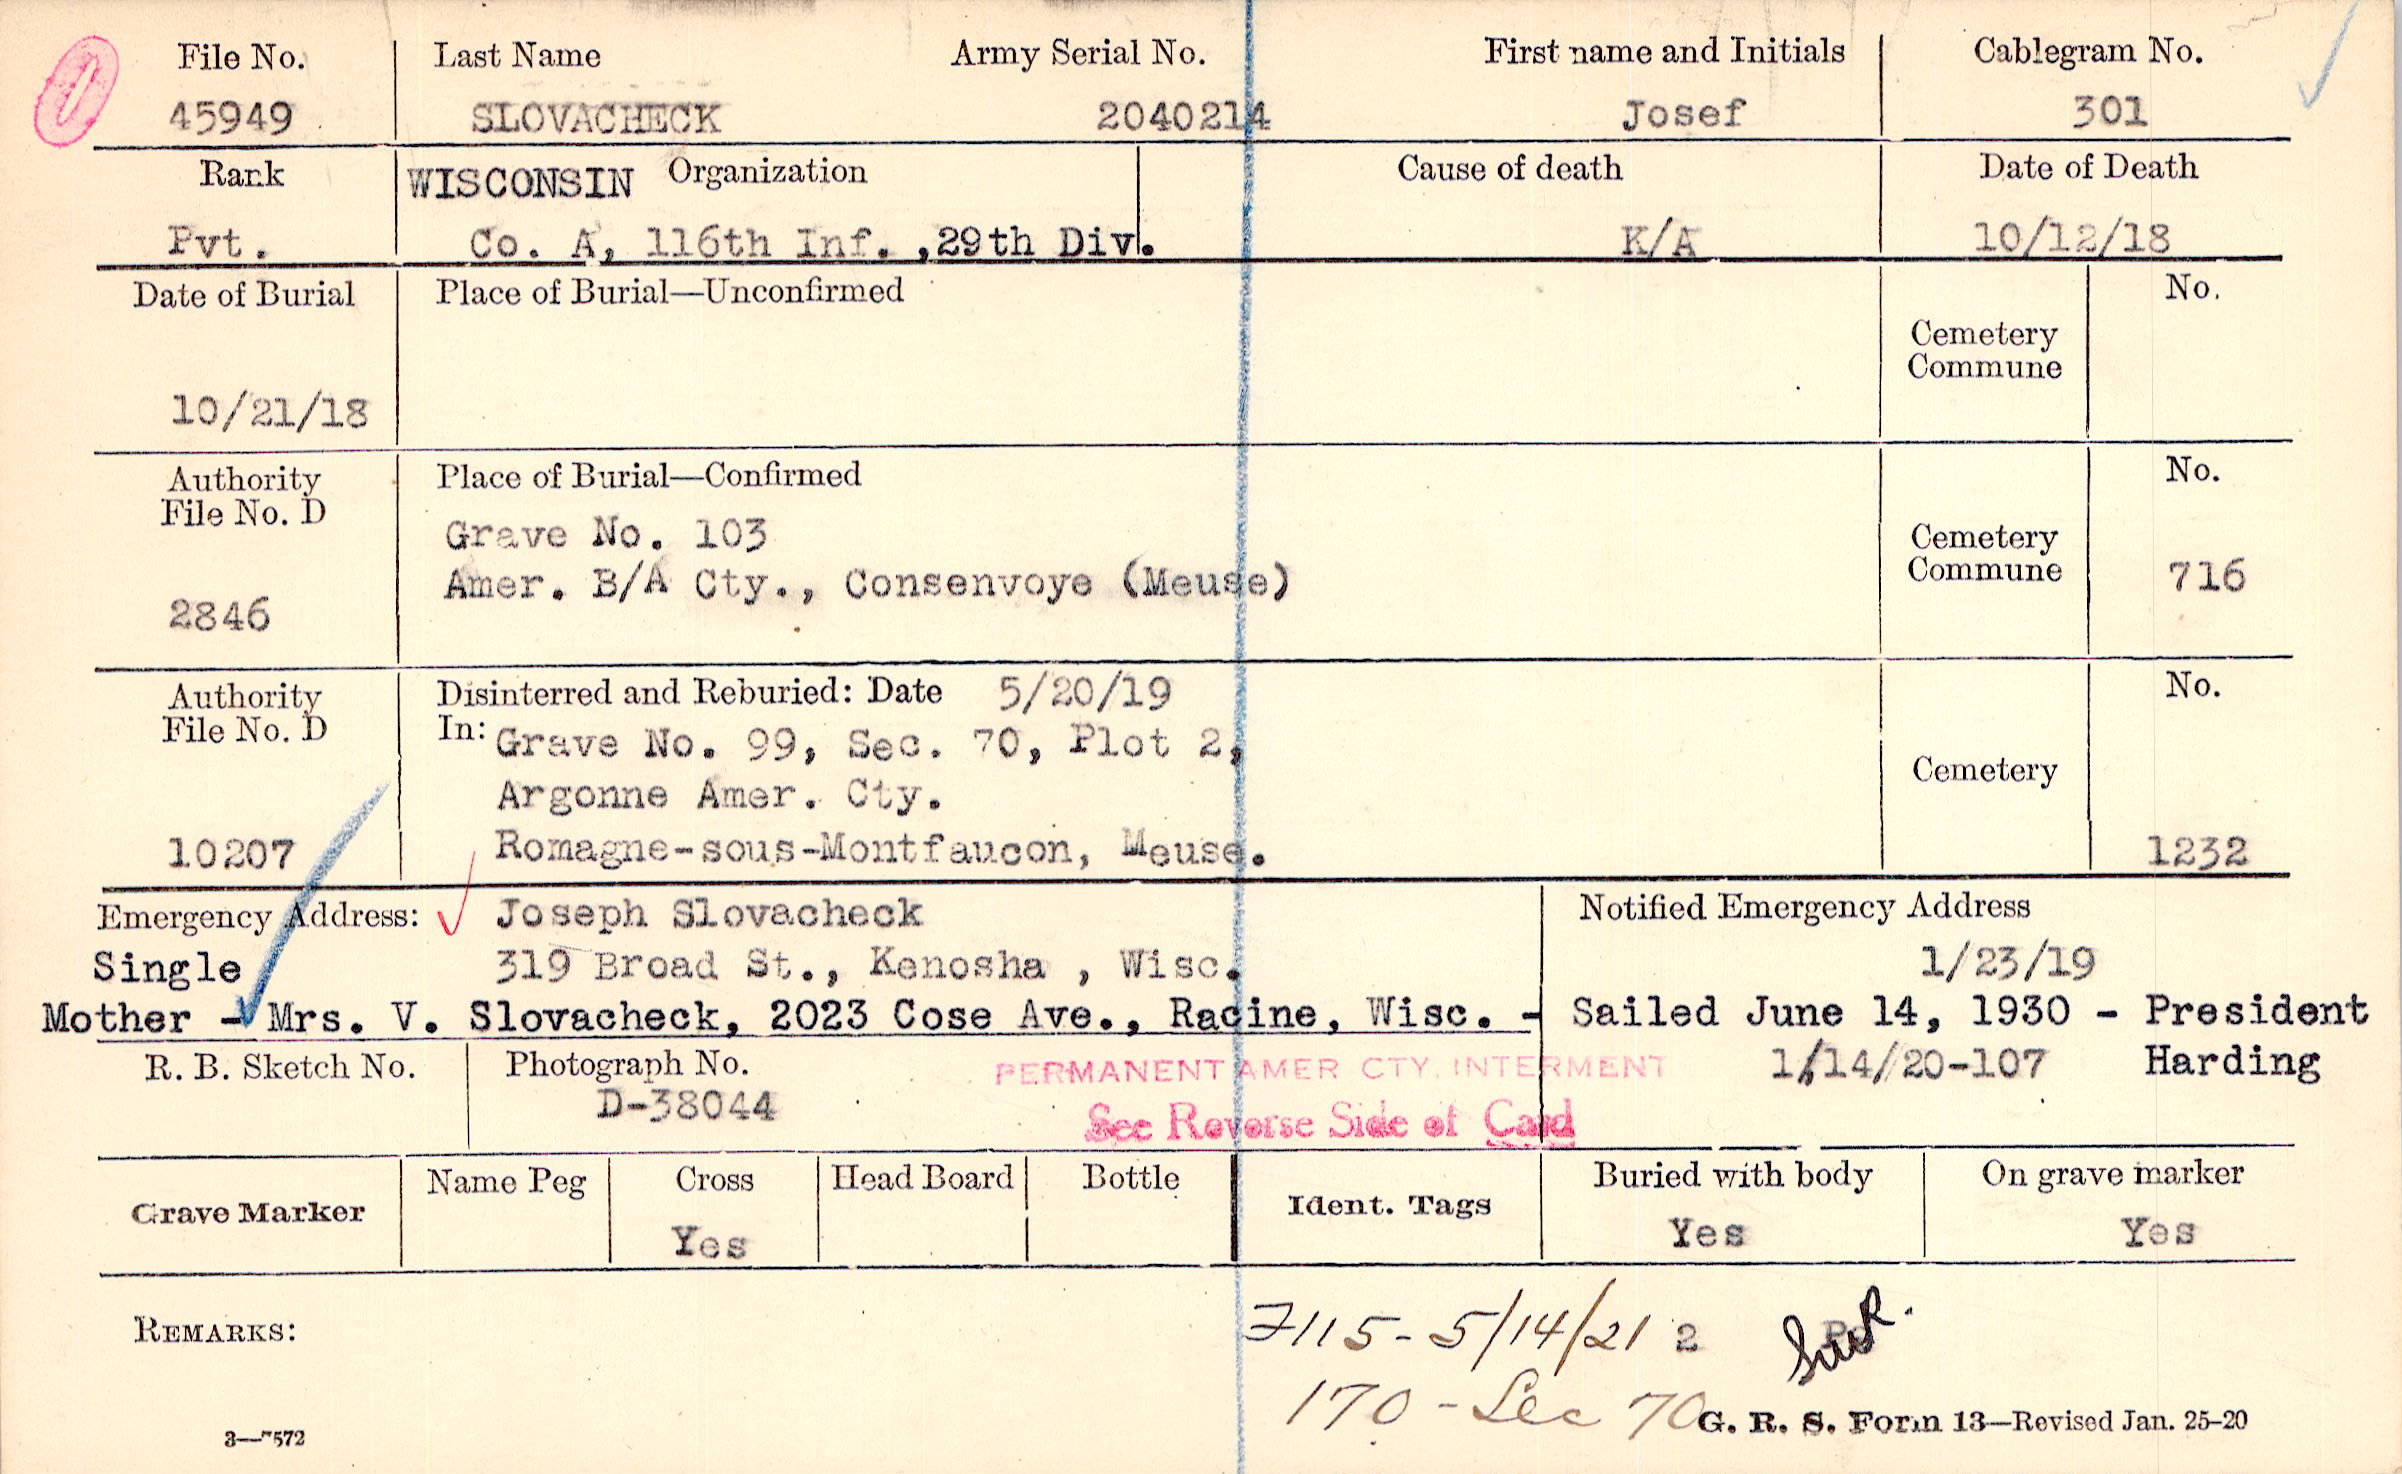 File No. Last Name Army Serial No. First name and Initials Cablegram No.
45949 SLOVACHECK 2040214 Josef 301
Rank WISCONSIN Organization Cause of death Date of Death
Pvt. Co. A, 116th Inf. ,29th Div. K/A 10/12/18
Date of Burial Place of Burial—Unconfirmed No.
Cemetery
Commune
10/21/18
Authority Place of Burial—Confirmed No.
File No. D
Grave No. 103 Cemetery
Amer. B/A Cty., Consenvoye (Meuse) Commune 716
2846
Authority Disinterred and Reburied: Date 5/20/19 No.
File No. D In: Grave No. 99, Sec. 70, Plot 2,
Argonne Amer. Cty. Cemetery
10207 Romagne-sous-Montfaucon, Meuse. 1232
Emergency Address: Joseph Slovacheck Notified Emergency Address
Single 319 Broad St., Kenosha , Wisc. 1/23/19
Mother - Mrs. V. Slovacheck, 2023 Cose Ave., Racine, Wisc. - Sailed June 14, 1930 - President
R. B. Sketch No. Photograph No. PERMANENT AMER CTY. INTERMENT 1/14/20-107 Harding
D-38044 See Reverse Side of Card
Grave Marker Name Peg Cross Head Board Bottle Ident. Tags Buried with body On grave marker
Yes Yes Yes
REMARKS: 7115- 5/14/21 2
170 - Sec 70
3—7572 G. R. S. Form 13—Revised Jan. 25-20